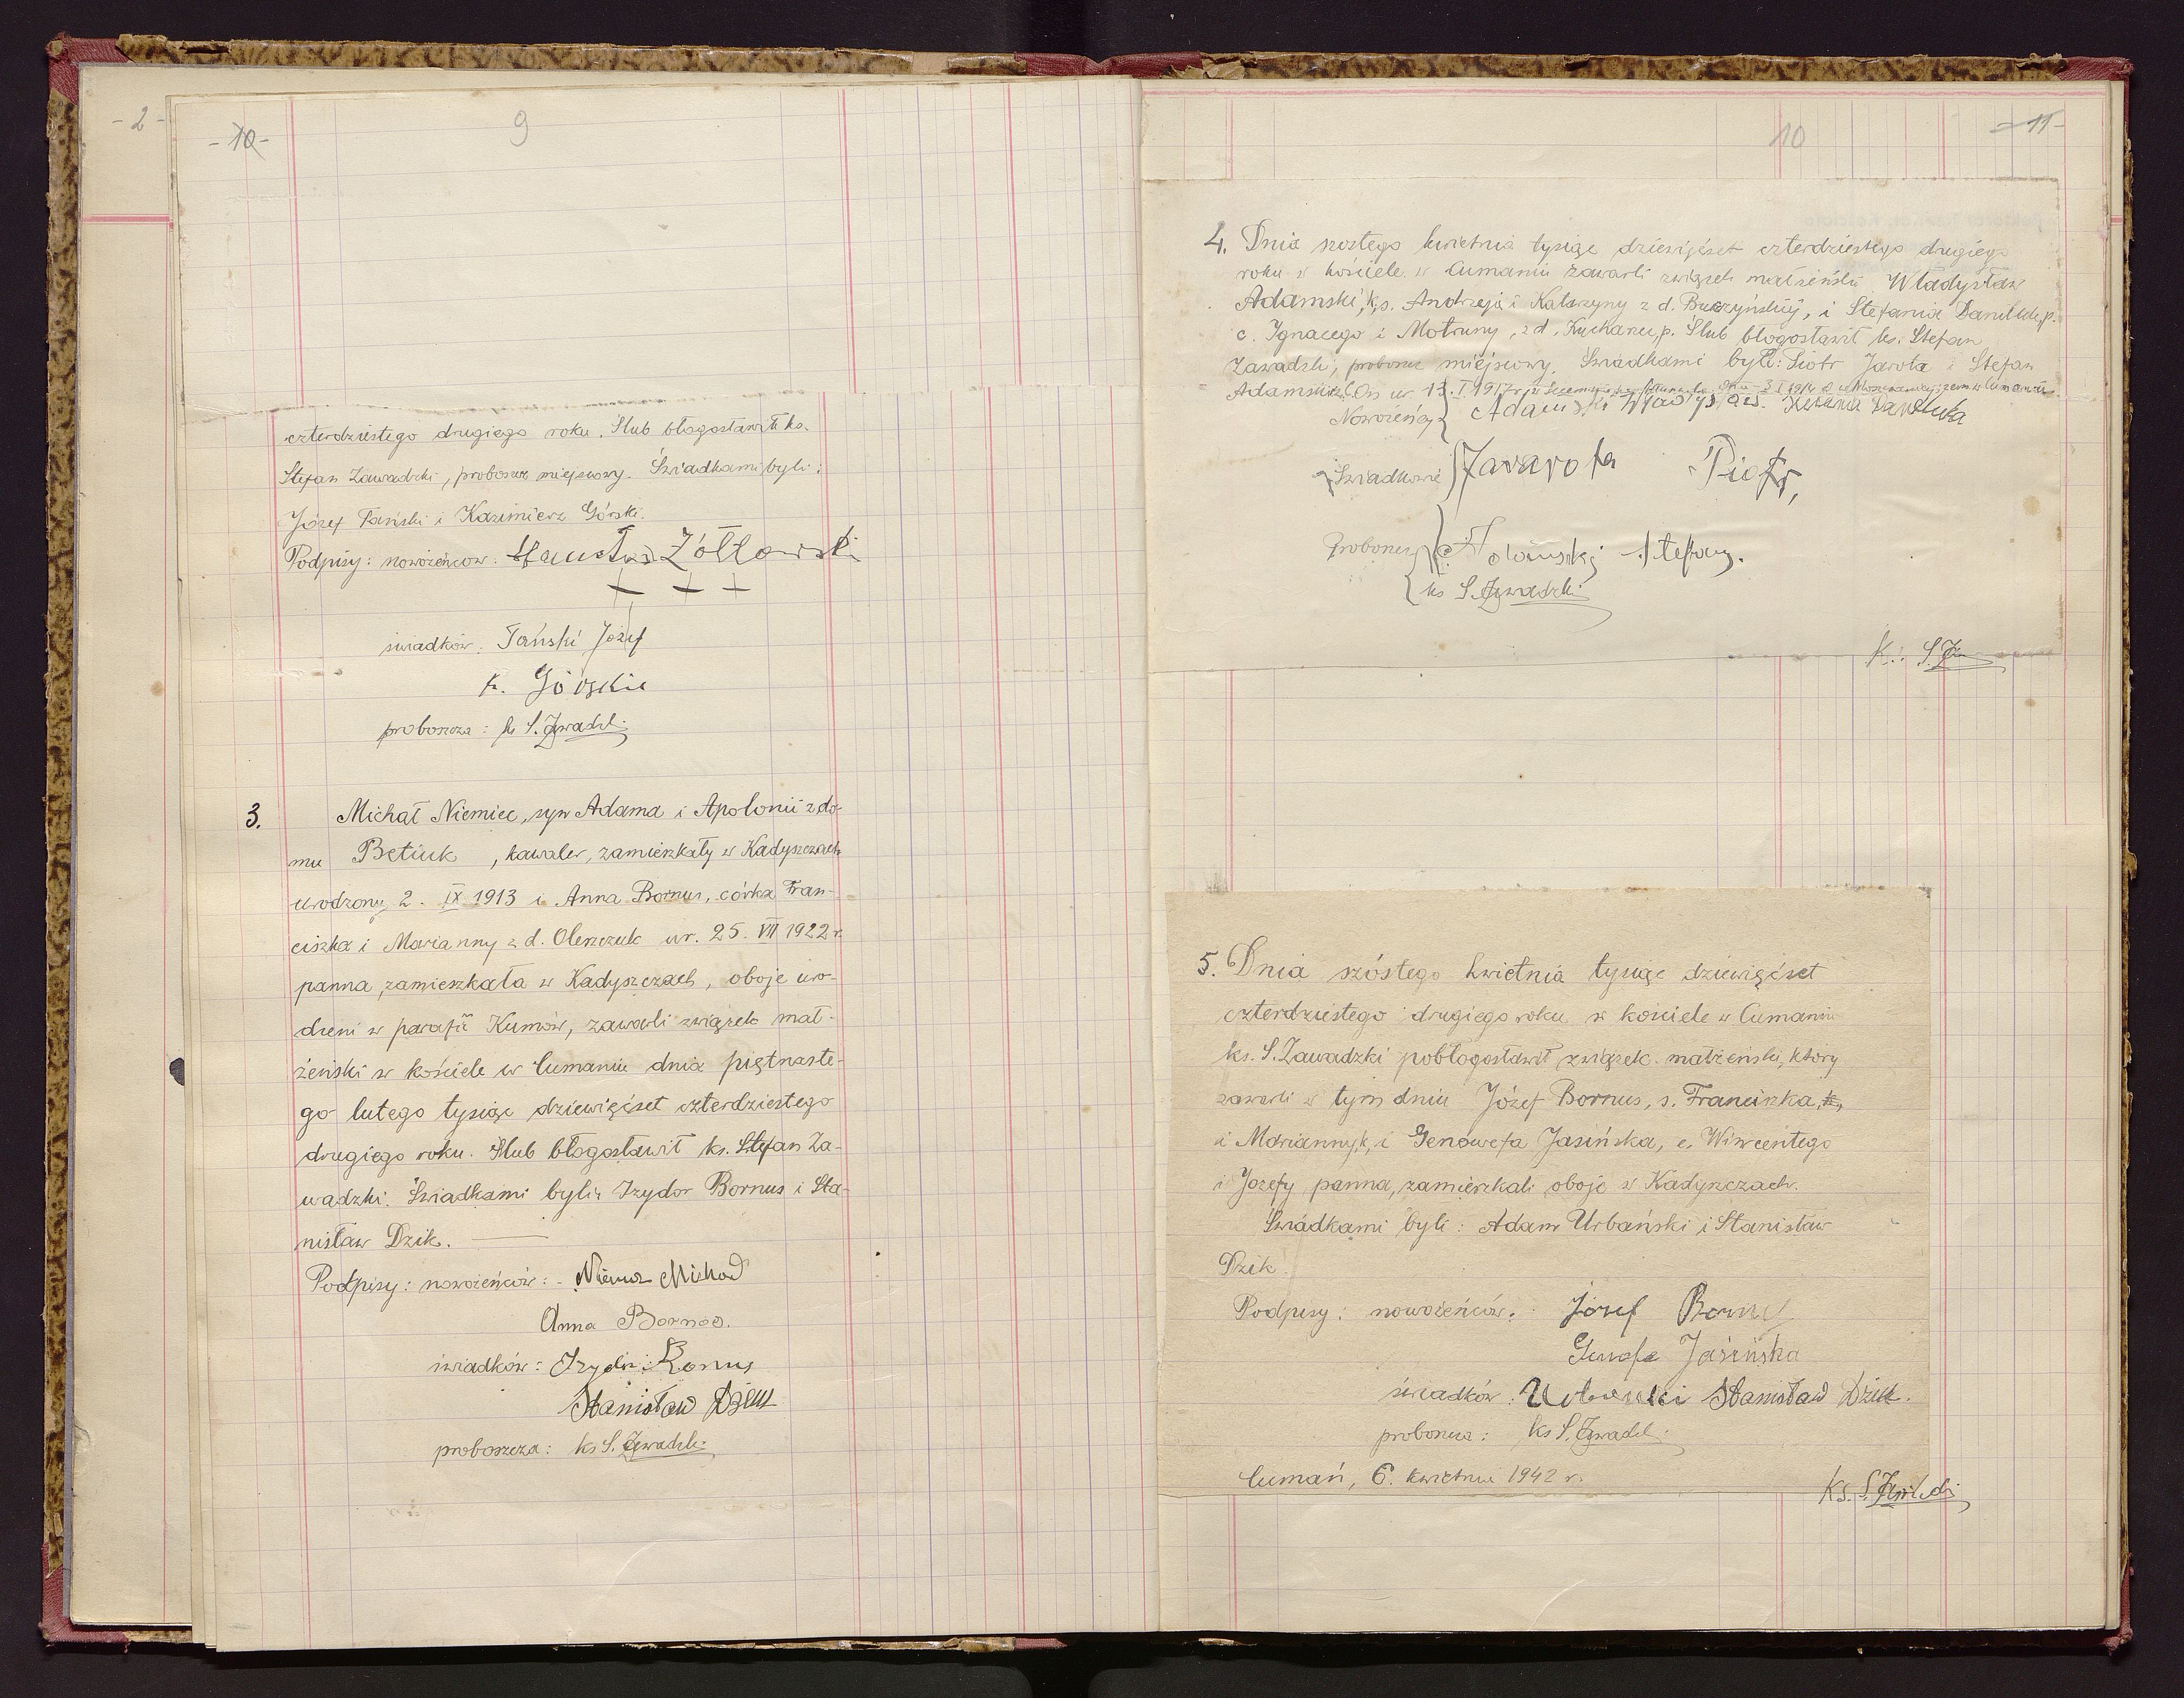 - 2 -
- 10 -
9
czterdziestego drugiego roku. Ślub błogosławił ks.
Stefan Zawadzki, proboszcz miejscowy. Świadkami byli:
Józef Tański i Kazimierz Górski.
Podpisy: nowożeńców: Żółtowski
+ + +
świadków: Tański Józef
K. Górskie
proboszcza: ks S. Zawadzki
3. Michał Niemiec, syn Adama i Apolonii z do-
mu Betiuk, kawaler, zamieszkały w Kadyszczach
urodzony 2. IX 1913 i Anna Bornus, córka Fran-
ciszka i Marianny z d. Olenczuk ur. 25. VII 1922 r.
panna, zamieszkała w Kadyszczach, oboje uro-
dzeni w parafii Kumów, zawarli związek mał-
żeński w kościele w Cumaniu dnia piętnaste-
go lutego tysiąc dziewięćset czterdziestego
drugiego roku. Ślub błogosławił ks. Stefan Za-
wadzki. Świadkami byli: Izydor Bornus i Sta-
nisław Dzik.
Podpisy: nowożeńców: Michad
Anna Bornos.
świadków: Izydor
Stanisław
proboszcza: ks S. Zawadzki
10
- 11 -
4. Dnia szóstego kwietnia tysiąc dziewięćset czterdziestego drugiego
roku w kościele w Cumaniu zawarli związek małżeński Władysław
Adamski, k, s. Andrzeja i Katarzyny z d. Buczyńskiej, i Stefania Daniluk, p.
c. Ignacego i Motruny z d. Kucharuk, p. Ślub błogosławił ks. Stefan
Zawadzki, proboszcz miejscowy. Świadkami byli: Piotr Jawota i Stefan
Adamski. On ur. 13. I. 1917 r.
Nowożeńcy Adamski Władysław. Daniluka
Świadkowie Piotr,
Proboszcz Stefan.
ks S. Zawadzki
Ks. S. Za
5. Dnia szóstego kwietnia tysiąc dziewięćset
czterdziestego drugiego roku w kościele w Cumaniu
ks. S. Zawadzki pobłogosławił związek małżeński, który
zawarli w tym dniu Józef Bornus, s. Franciszka,
i Marianny, k, i Genowefa Jasińska, c. Wincentego
i Józefy, panna, zamieszkali oboje w Kadyszczach.
Świadkami byli: Adam Urbański i Stanisław
Dzik.
Podpisy: nowożeńców: Józef Bornus
Jasińska
świadków: Stanisław Dzik.
proboszcza: ks S. Zawadzki
Cumań, 6. kwietnia 1942 r.
Ks. S. Zawadzki